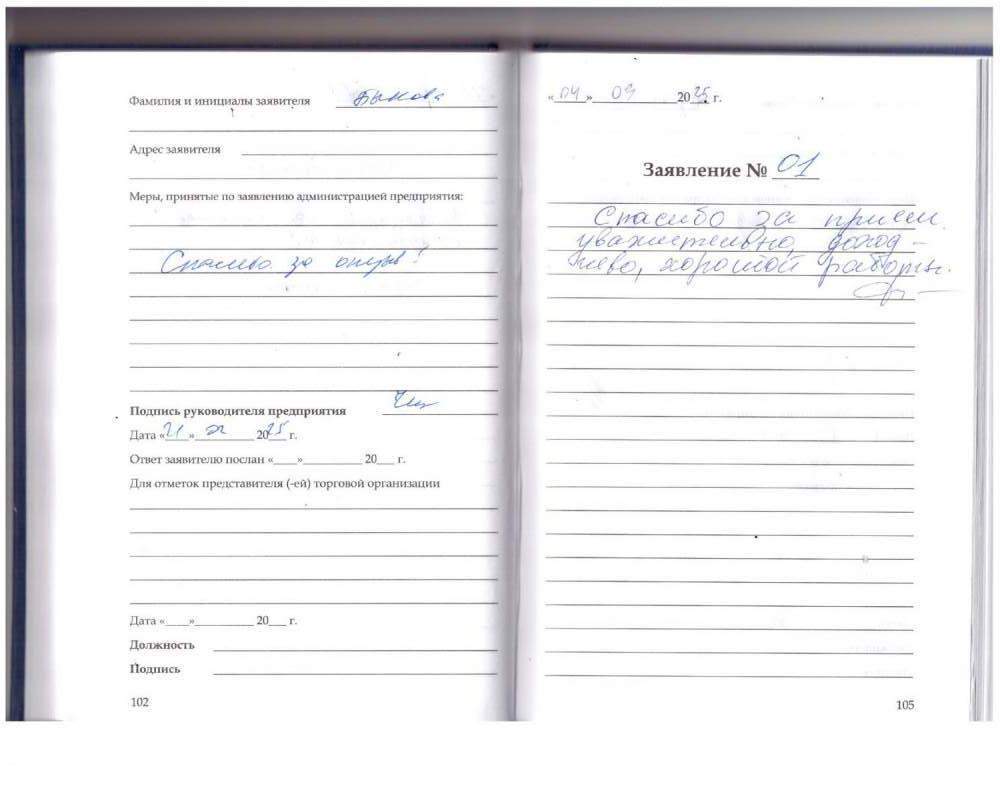 Фамилия и инициалы заявителя Быкова
Адрес заявителя
Меры, принятые по заявлению администрацией предприятия:
Спасибо за отзыв!
Подпись руководителя предприятия
Дата «21» 2025 г.
Ответ заявителю послан «___»__________ 20___ г.
Для отметок представителя (-ей) торговой организации
Дата «____»__________ 20___ г.
Должность
Подпись
102
«04» 09 2025 г.
Заявление № 01
Спасибо за прием
уважительно, доход-
чиво, хорошой работы.
105